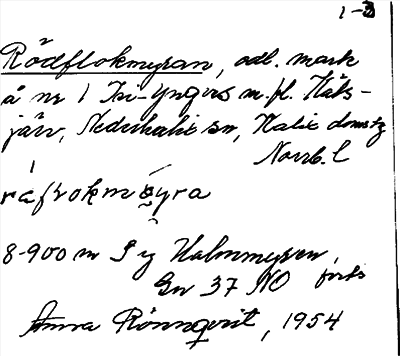 1-3
Rödflokmyran, odl. mark
å nr 1 Isi-Yngvis m.fl. Häts-
järv, Nederkalix sn, Kalix domstg
Norrb. l
råfrokmyra
8-900 m S y Halmmyren,
Gn 37 NO forts
Anna Rönnqvist, 1954